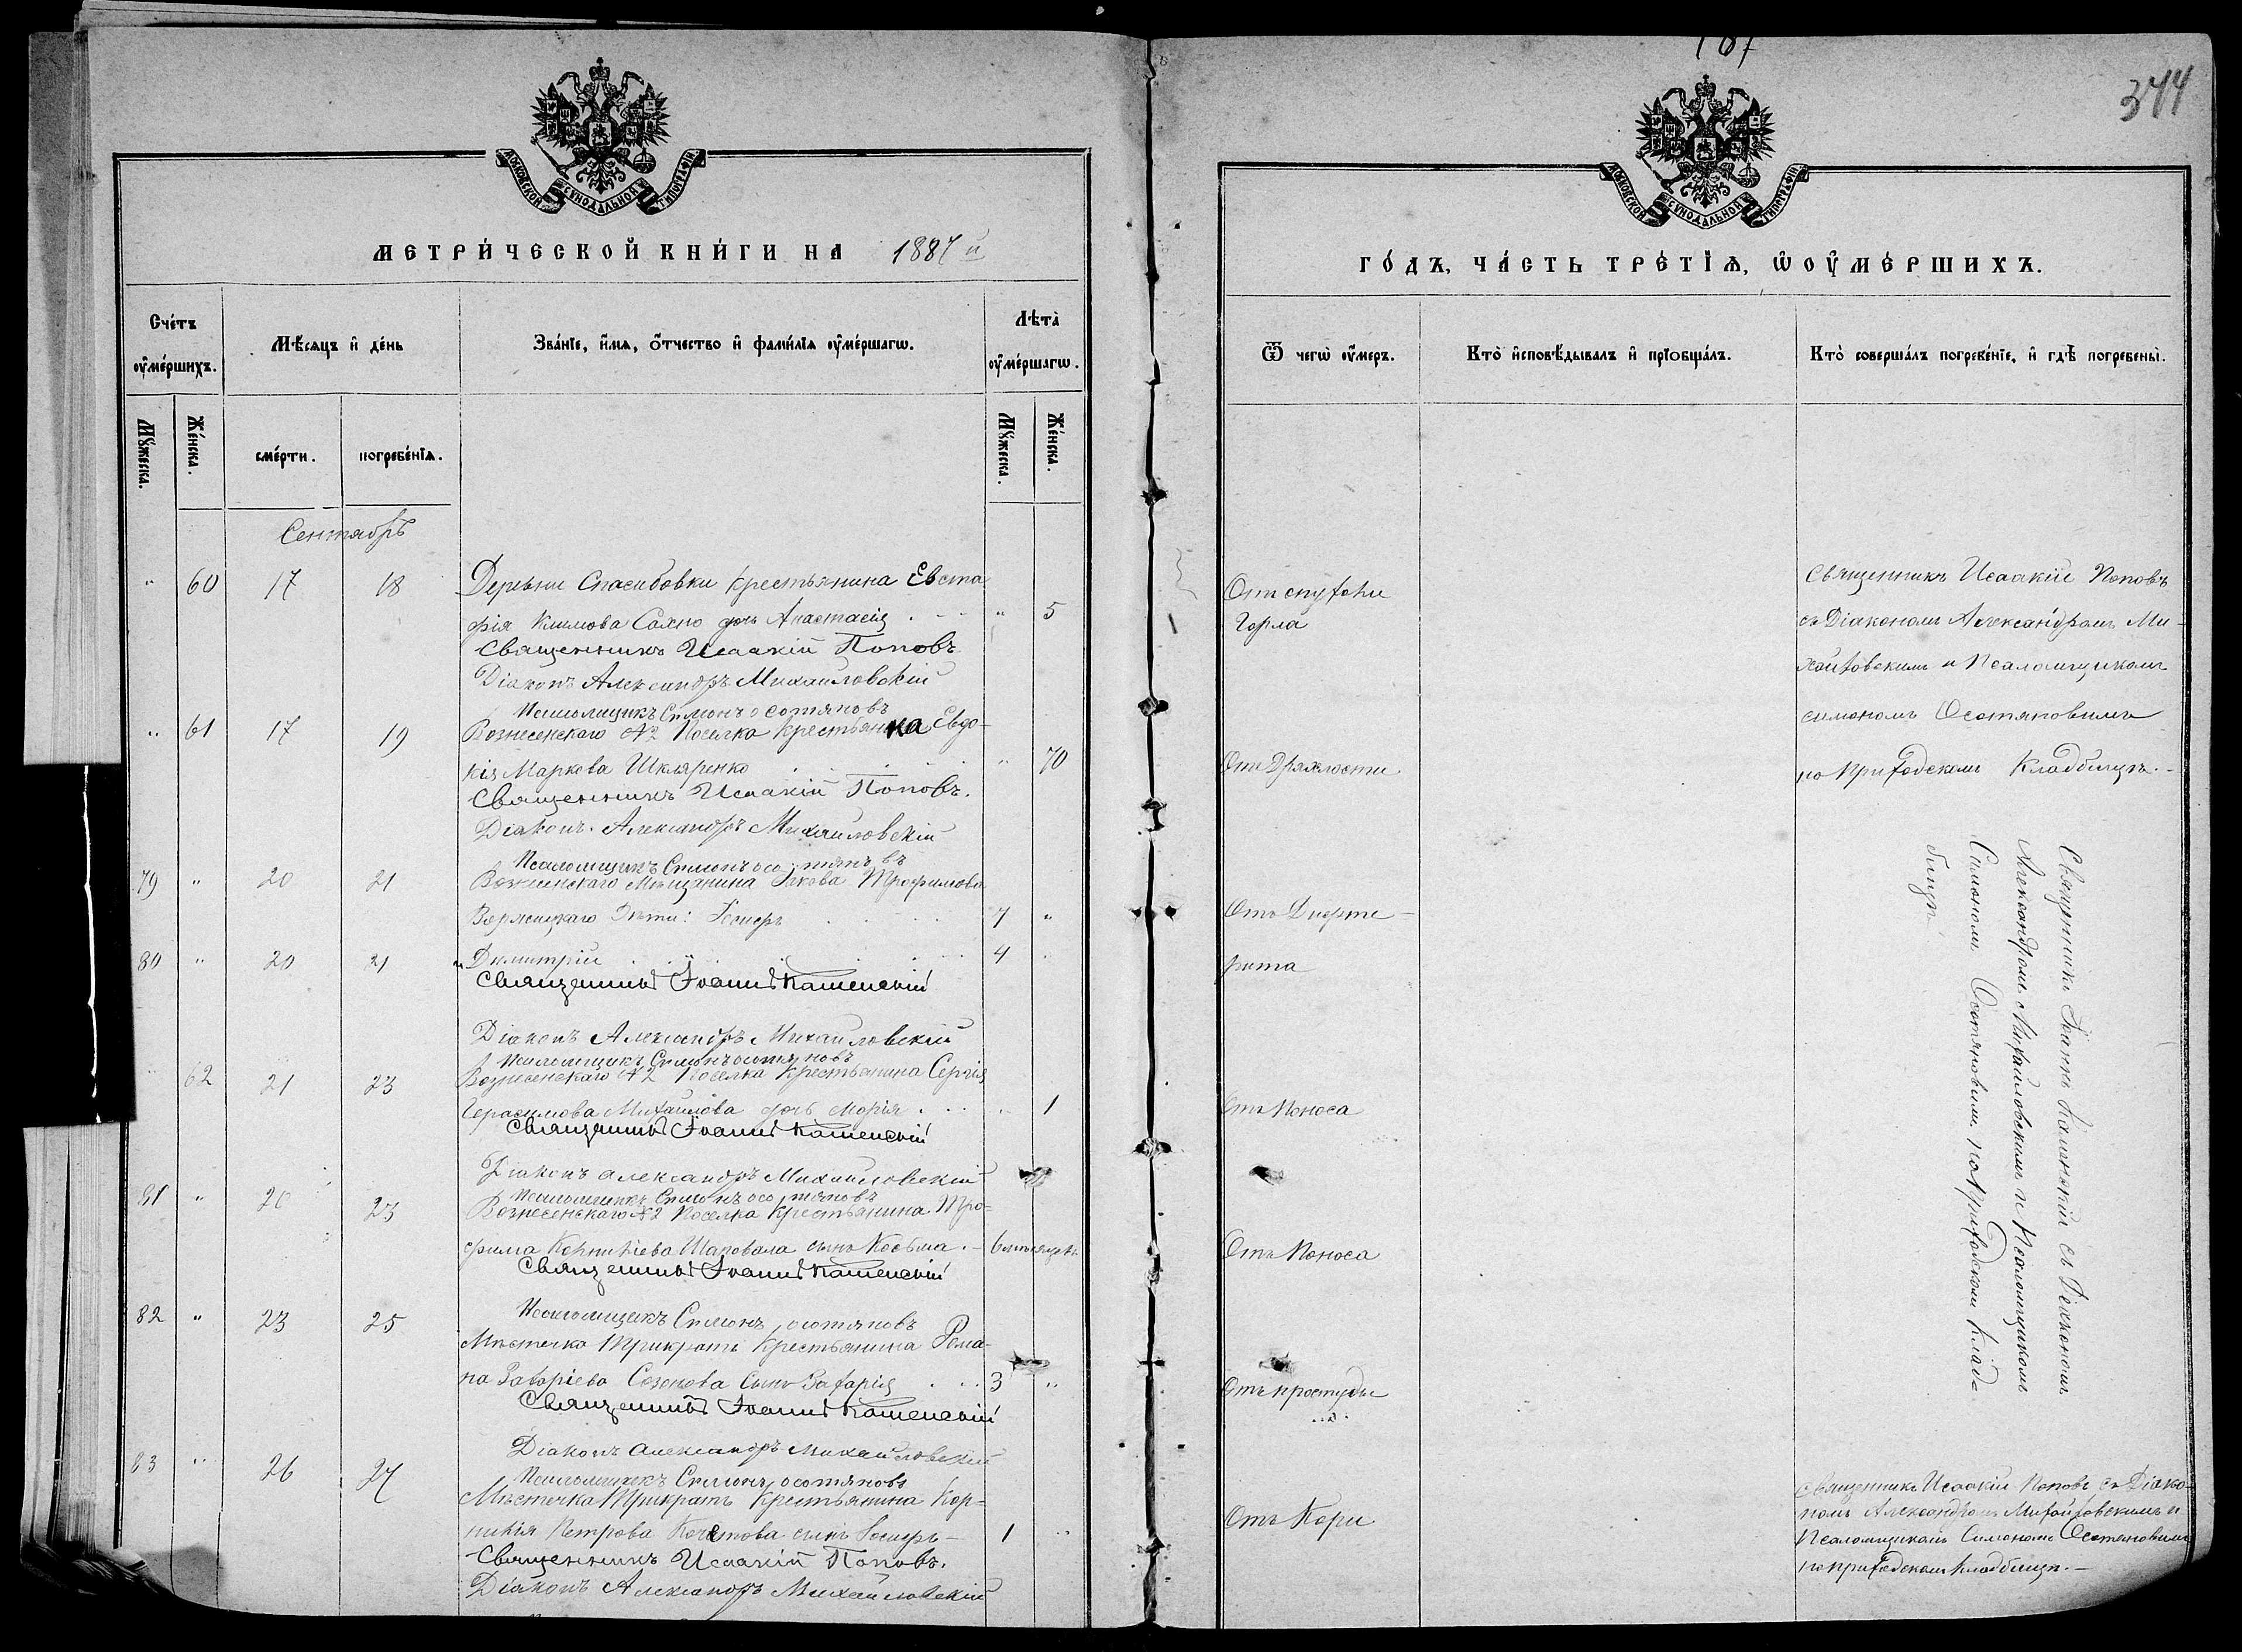 МОСКОВСКОЙ СѴНОДАЛЬНОЙ ТИПОГРАФІИ.
МЕТРИ́ЧЕСКОЙ КНИ́ГИ НА 1887й
Сче́тъ оу҆ме́ршихъ.
Мѣ́сяцъ и҆ де́нь
Зва́нїе, и҆́мя, ѻ҆́тчество и҆ фами́лїя оу҆ме́ршагѡ.
Лѣта̀ оу҆ме́ршагѡ.
Мꙋ́жеска.
Же́нска.
сме́рти.
погребе́нїѧ.
Мꙋ́жеска.
Же́нска.
Сентябрь
" 60 17 18 Деревни Спасибовки Крестьянина Евста
фія Климова Сахно дочь Анастасія " 5
Священникъ Исаакій Поповъ
Діаконъ Александръ Михайловскій
Псаломщикъ Симонъ Осотяновъ
" 61 17 19 Вознесенскаго №2 Поселка Крестьянка Евдо-
кія Маркова Шкляренко " 70
Священникъ Исаакій Поповъ.
Діаконъ Александръ Михайловскій
Псаломщикъ Симонъ Осотяновъ
79 " 20 21 Вознесенскаго Мѣщанина Іакова Трофимова
Дѣти: 7 "
80 " 20 21 Димитрій 4
Священникъ Іоаннъ Каменскій
Діаконъ Александръ Михайловскій
Псаломщикъ Симонъ Осотяновъ
" 62 21 23 Вознесенскаго №2 Поселка Крестьянина Сергія
Герасимова Михайлова дочь Марія 1
Священникъ Іоаннъ Каменскій
Діаконъ Александръ Михайловскій
Псаломщикъ Симонъ Осотяновъ
81 " 23 Вознесенскаго №2 Поселка Крестьянина Тро-
фима Корнилієва Шаповала сынъ Косьма 6 мѣсяцевъ
Священникъ Іоаннъ Каменскій
82 " 23 25 Псаломщикъ Симонъ Осотяновъ
Мѣстечка Трикратъ Крестьянина Рома-
на Захаріева Созонова сынъ Захарія 3 "
Священникъ Іоаннъ Каменскій
Діаконъ Александръ Михайловскій
83 " 26 27 Псаломщикъ Симонъ Осотяновъ
Мѣстечка Трикратъ Крестьянина Кор-
нилія Петрова сынъ Іосифъ 1 "
Священникъ Исаакій Поповъ.
Діаконъ Александръ Михайловскій
187
344
МОСКОВСКОЙ СѴНОДАЛЬНОЙ ТИПОГРАФІИ.
ГО́ДЪ, ЧА́СТЬ ТРЕ́ТЇѦ, Ѡ҆ ОУ҆МЕ́РШИХЪ.
Ѿ чегѡ̀ оу҆́меръ.
Кто̀ и҆сповѣ́дывалъ и҆ прїобща́лъ.
Кто̀ соверша́лъ погребе́нїе, и҆ гдѣ̀ погребены̀.
Отъ опухоли
Горла
Священникъ Исаакій Поповъ
съ Діакономъ Александромъ Ми-
хайловскимъ и Псаломщикомъ
Симономъ Осотяновымъ
на приходскомъ Кладбищѣ.
Отъ Дряхлости
Отъ Дифте-
рита
Отъ Поноса
Отъ Поноса
Отъ простуды
Священникъ Іоаннъ Каменскій съ Діакономъ
Александромъ Михайловскимъ и Псаломщикомъ
Симономъ Осотяновымъ на приходскомъ Клад-
бищѣ
Отъ Кори
Священникъ Исаакій Поповъ съ Діако-
номъ Александромъ Михайловскимъ и
Псаломщикомъ Симономъ Осотяновымъ
на приходскомъ Кладбищѣ.